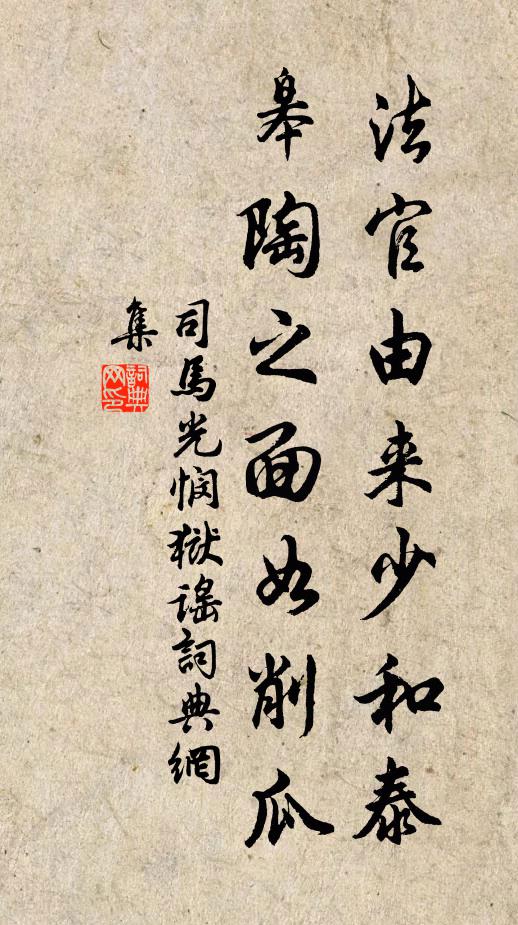 法官由来少和泰
皋陶之面如削瓜
司馬光悯獄謠詞典網
集
詞典
网印